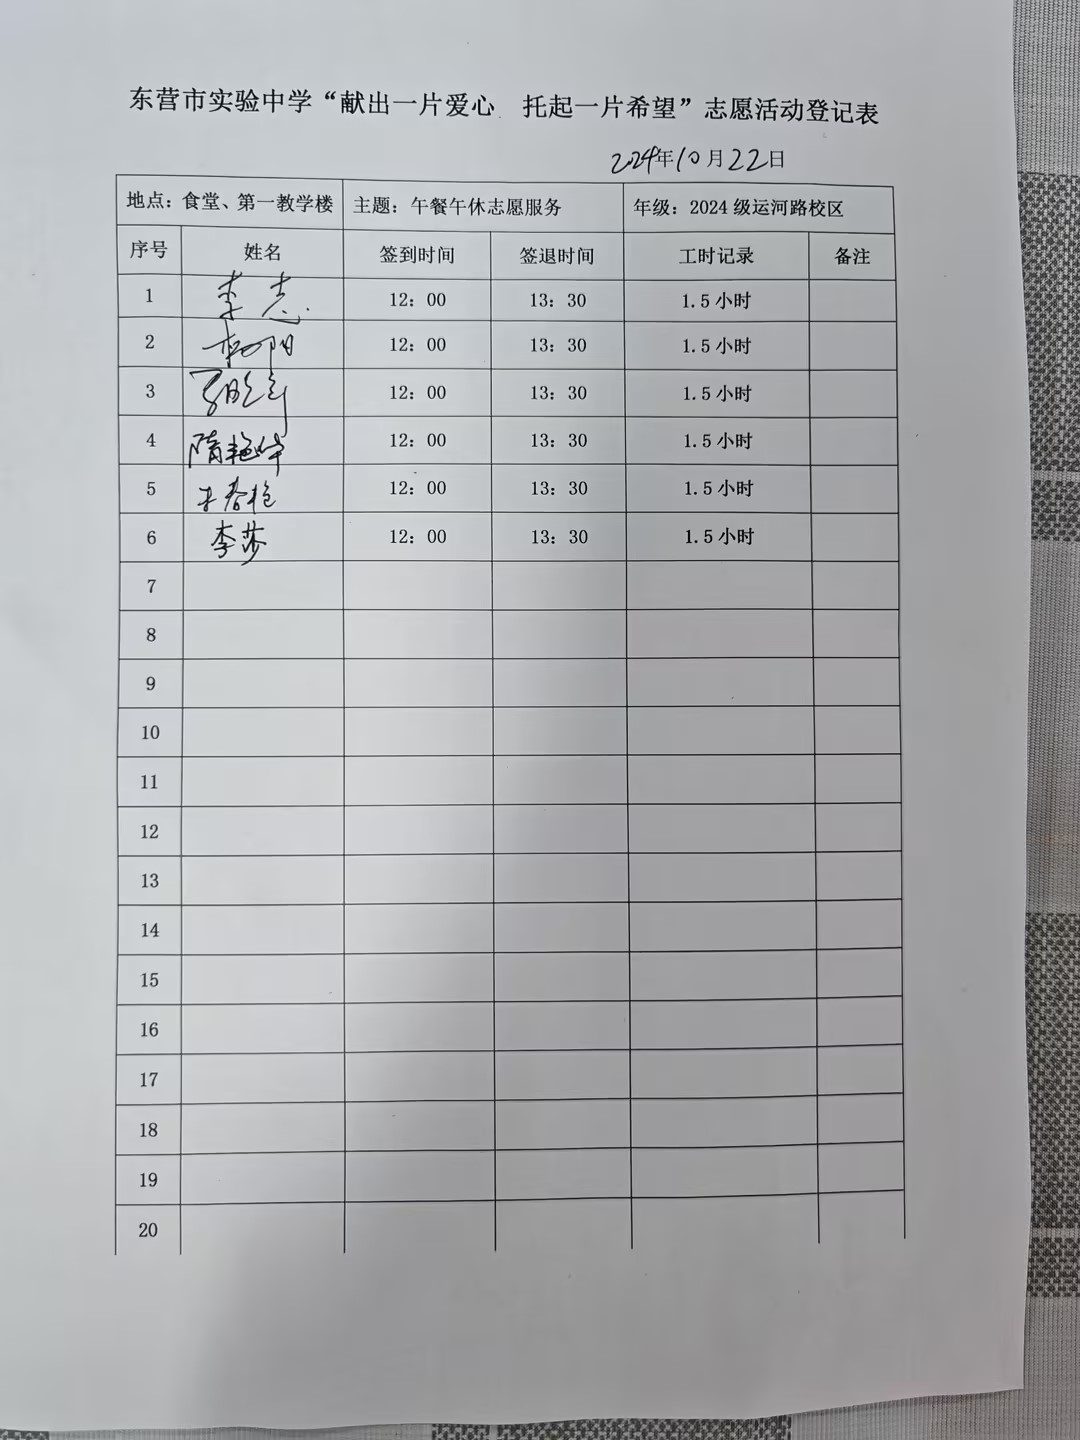 东营市实验中学“献出一片爱心 托起一片希望”志愿活动登记表
2024年10月22日
地点：食堂、第一教学楼 主题：午餐午休志愿服务 年级：2024级运河路校区
序号 姓名 签到时间 签退时间 工时记录 备注
1 李志 12：00 13：30 1.5小时
2 12：00 13：30 1.5小时
3 12：00 13：30 1.5小时
4 隋艳华 12：00 13：30 1.5小时
5 12：00 13：30 1.5小时
6 李莎 12：00 13：30 1.5小时
7
8
9
10
11
12
13
14
15
16
17
18
19
20